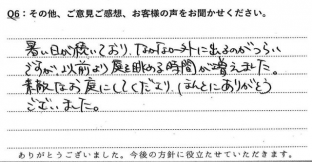 Q6：その他、ご意見ご感想、お客様の声をお聞かせください。
暑い日が続いており、なかなか外に出るのがつらい
ですが、以前より庭を眺める時間が増えました。
素敵なお庭にしてくださり、ほんとにありがとう
ございました。
ありがとうございました。今後の方針に役立たせていただきます。